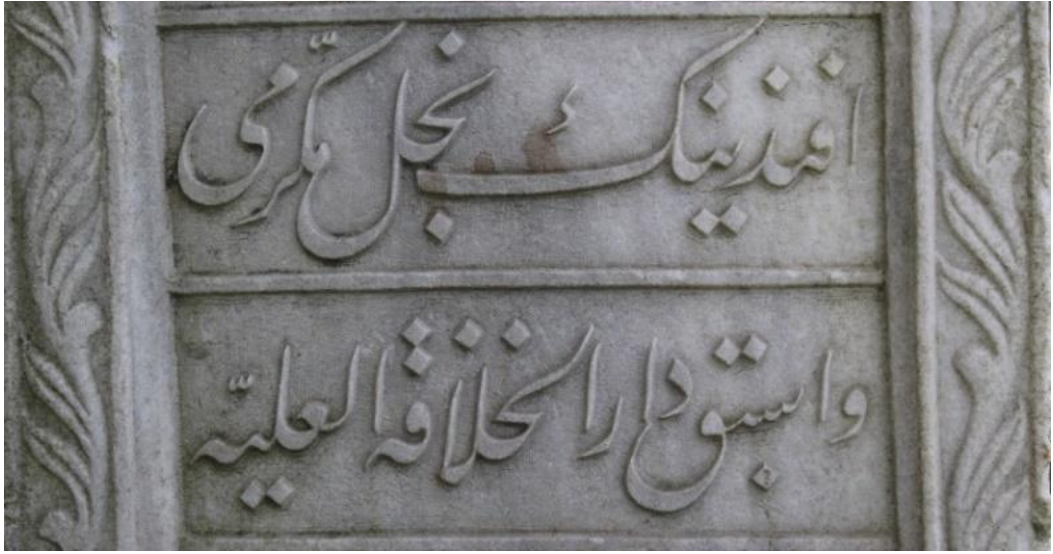 افندینك نجل مكرّمی
واسبق دار الخلافه العلیّه